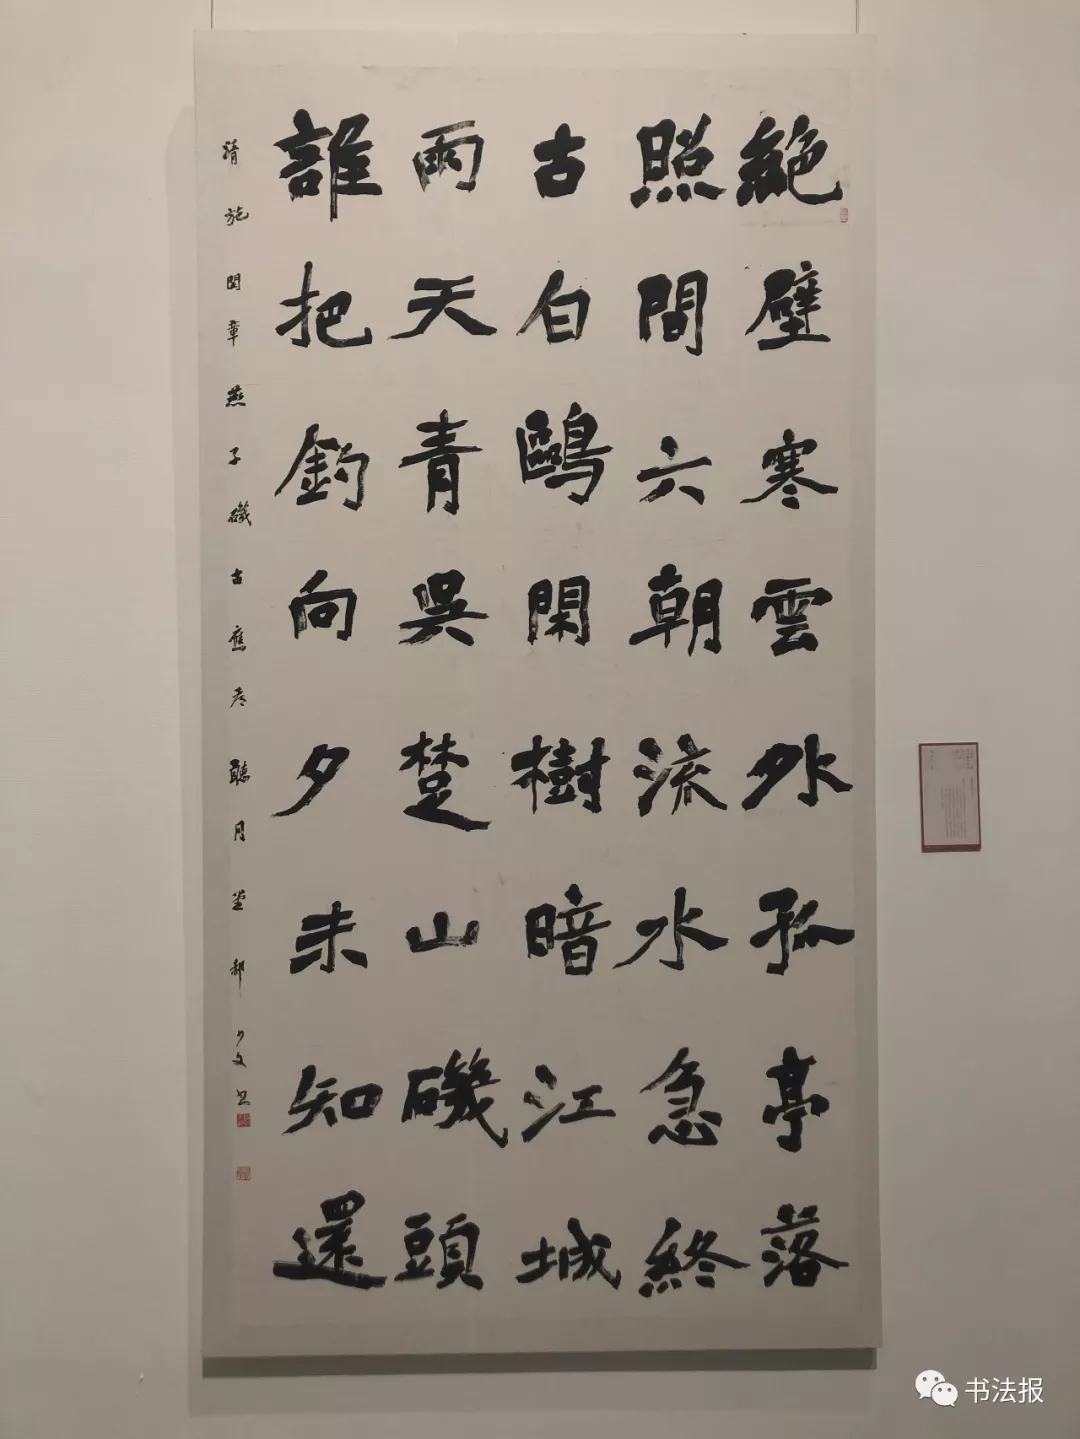 絕壁寒雲外孤亭落
照間六朝流水急終
古白鷗閑樹暗江城
雨天青吳楚山磯頭
誰把釣向夕未知還
清施閏章燕子磯古應老聽月堂郝少文書
书法报